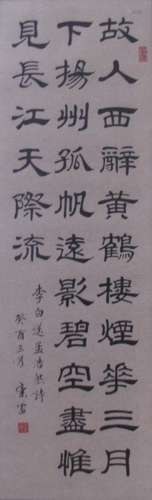 故人西辭黃鶴樓煙華三月
下揚州孤帆遠影碧空盡惟
見長江天際流
李白送孟浩然詩
癸酉三月